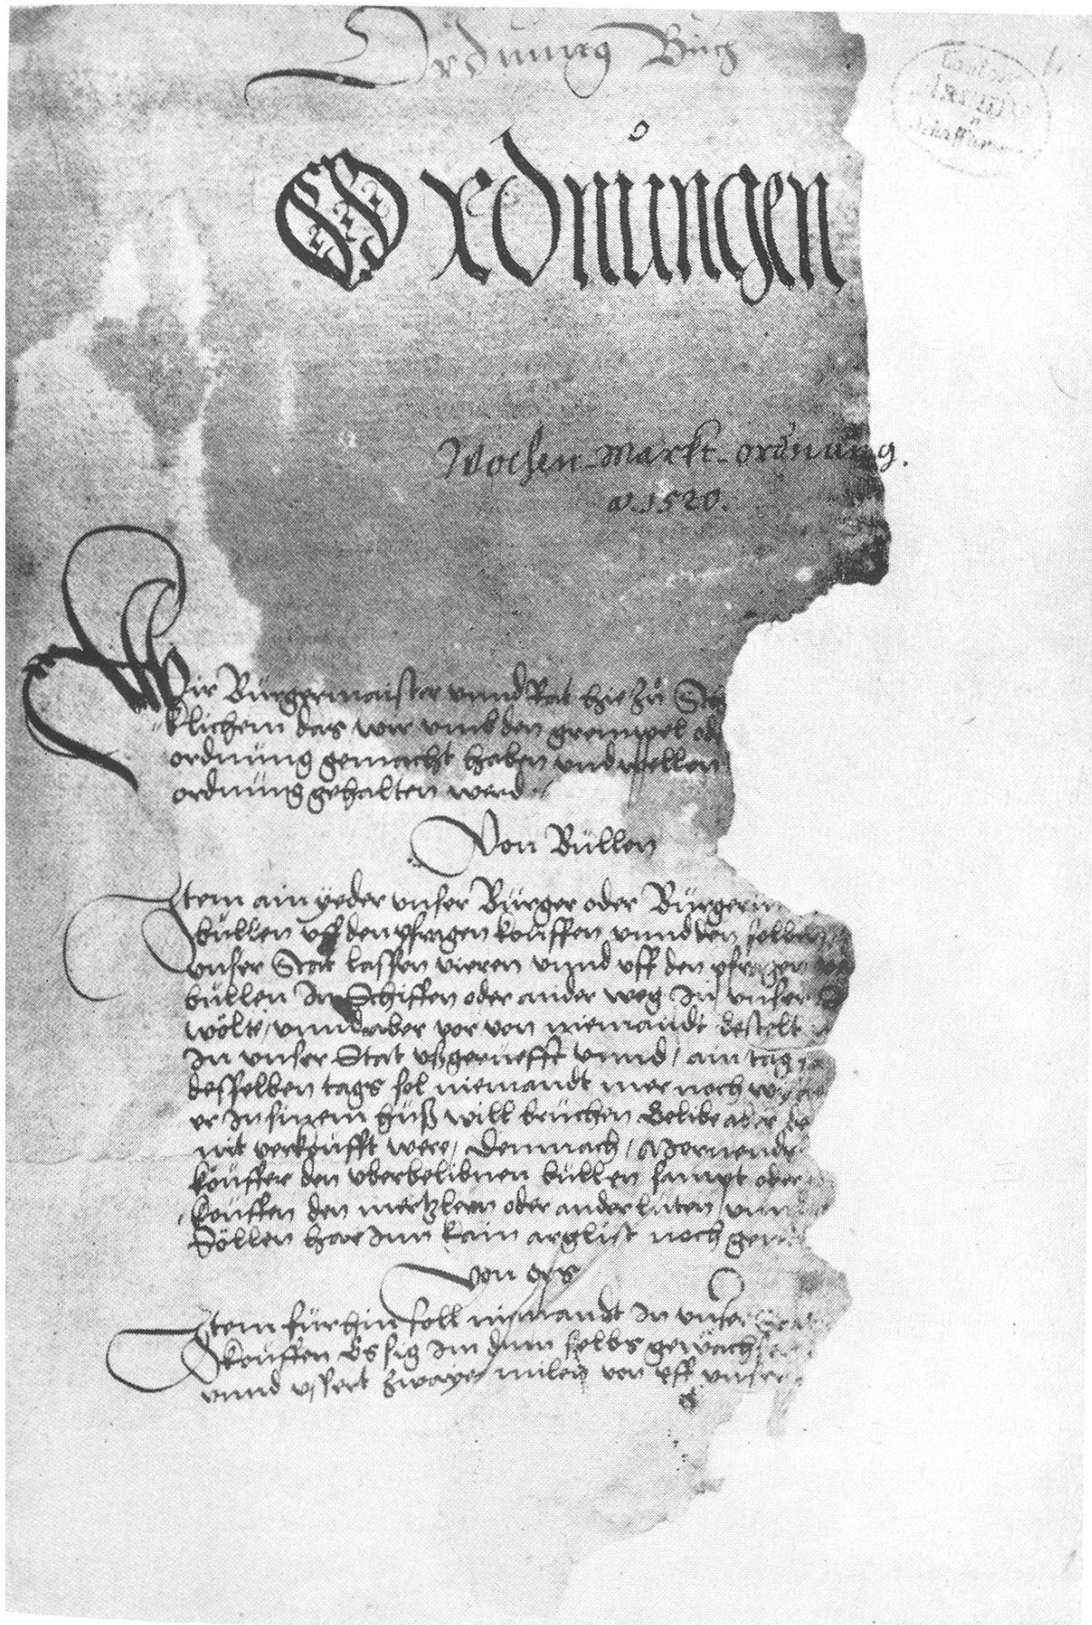 Ordnung Buch
Ordnungen
Wochen-Markt-ordnung.
aº. 1520.
Wir Bürgermaister unnd Rat hie zů Sch
das wir umb den grempel od
ordnung gemacht haben und wellen
ordnung gehalten werd
Von Büllen
Item ain yeder unser Bürger oder Bürgerin
büllen uff den pfragen kouffen unnd den selben
unser Stat lassen vieren unnd uff den pfragen
büllen In Schiffen oder ander weg In unser S
wölte, unnd aber vor von niemandt bestelt
In unser Stat ußgeruefft unnd, ain tag
desselben tags sol niemandt mer noch
er In sinem huß will bruchen Belibe aber
nit verkoufft were, Demnach, Mornends
kouffer den uberbelibnen büllen sampt oder
kouffen den mertzlern oder ander lüten, unnd
Söllen har Inn kain arglist noch
Von ops
Item fürhin soll niemandt In unser
kouffen Es sig Im dann selbs gewachsen
unnd ussert zwayer milen von uff unser